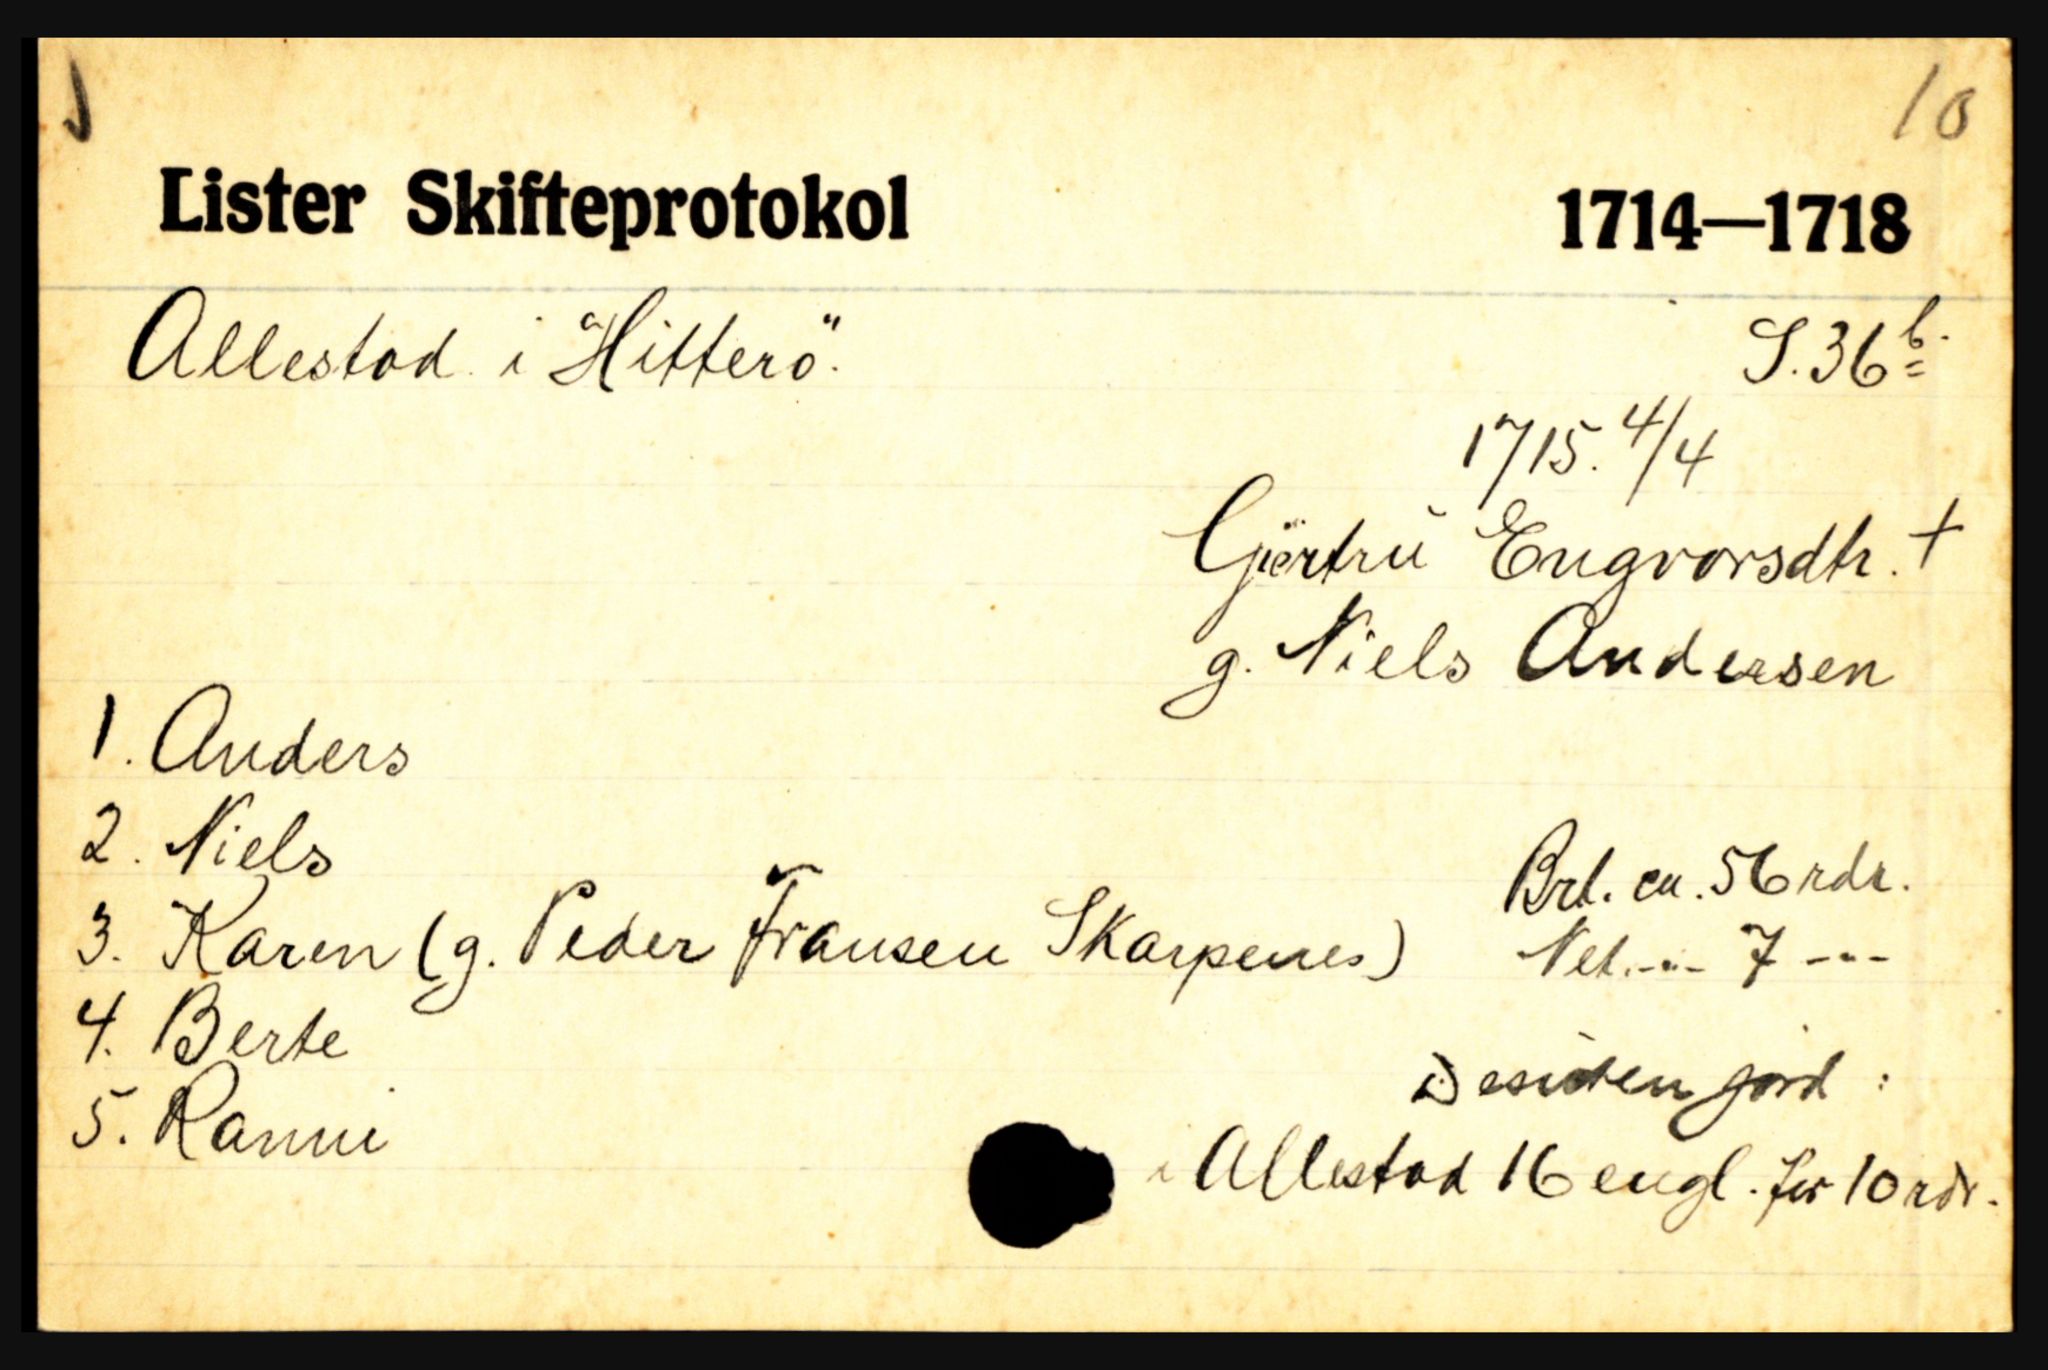 10
Lister Skifteprotokol 1714—1718
Allestad i "Hitterö".
S. 36 b.
1715. 4/4
Gjertrü Engvorsdtr. +
g. Niels Andersen
1. Anders
2. Niels
3. Karen (g. Peder Fransen Skarpenes)
4. Berte
5. Ranni
Brt. ca. 56 rdr.
Net. -"- 7 -"-
i) esiden jord :
i Allestad 16 engl. for 10 rdr.